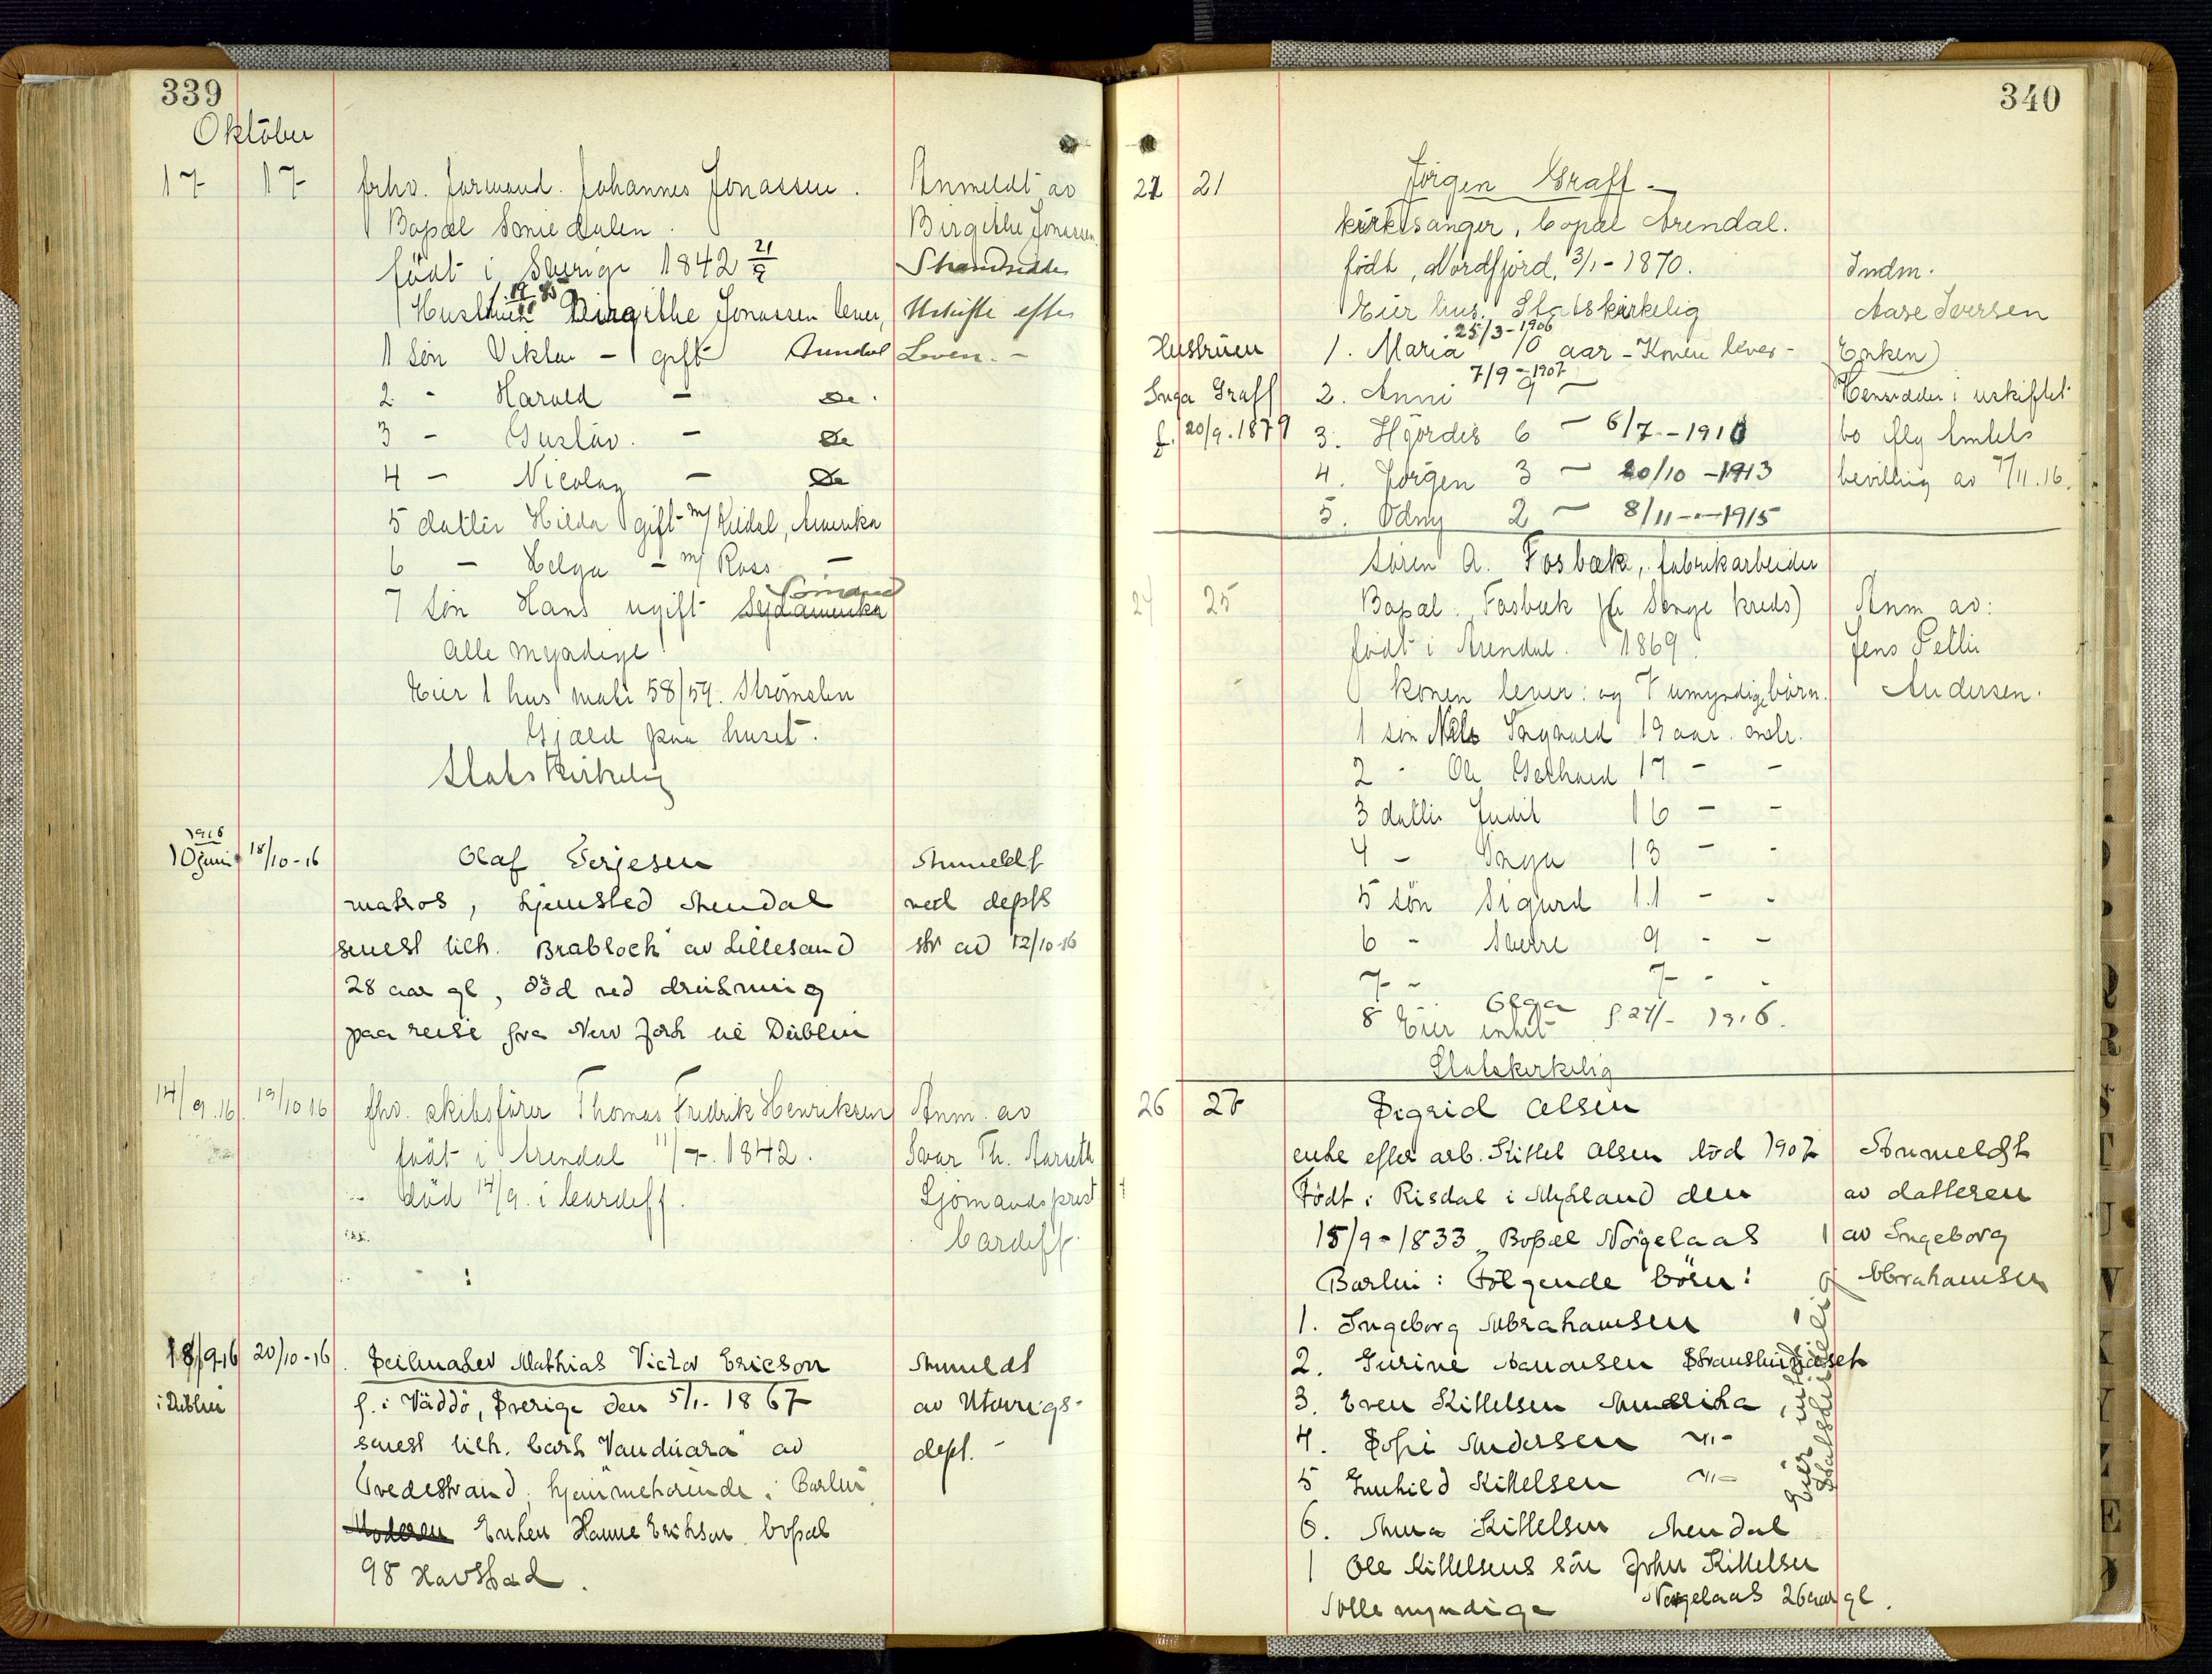 339
Oktober
17 17 frhv. formand. Johannes Jonassen. Anmeldt av
Bopæl Songe dalen. Birgithe Jonassen
født i Sverige 1842 21/9
Hustruen Birgithe Jonassen lever, Uskifte efter
1 søn Viktor - gift Arendal Loven. -
2 - Harald - Do.
3 - Gustav. - Do
4 - Nicolay - Do
5 datter Hilda gift m/ Amerika
6 - Helga - m/ Ross -
7 søn Hans ugift Sydamerika Sømand
alle myndige
Eier 1 hus matr 58/59. Strømsbu
Gjæld paa huset.
Statskirkelig
1916
10 juni 18/10-16 Olaf Terjesen Anmeldt
matros, hjemsted Arendal ved depts
senest tilh. "Brablock" av Lillesand skr av 12/10-16
28 aar gl, død ved drukning
paa reise fra New York til Dublin
14/9.16. 19/10 16 fhv. skibsfører Thomas Fredrik Henriksen Anm. av
født i Arendal 11/7. 1842. Ivar Th. Aarseth
- død 14/9. i Cardeff. Sjømandsprest
Cardeff.
18/9-16 20/10-16 Seilmaker Mathias Victor Ericson Anmeldt
i Dublin f. i Väddö, Sverige den 5/1. 1867 av Utenrigs-
senest tilh. bark "Vanduara" av dept. -
Tvedestrand, hjemmehørende i Barbu
Moderen Enken Hanne Erikson bopæl
98 Havstad.
340
21 21 Jørgen Graff -
kirkesanger, bopæl Arendal.
født, Nordfjord, 3/1-1870. Indm.
Eier hus. Statskirkelig Aase Iversen
Hustruen 1. Maria 10 aar - Konen lever - 25/3-1906 Enken)
Inga Graff 2. Anni 9 - 7/9-1907 Hensidder i uskiftet
f. 20/9.1879 3. Hjørdis 6 - 6/7-1910 bo iflg Amtets
4. Jørgen 3 - 20/10-1913 bevilling av 7/11.16.
5. Odny 2 - 8/11-1915
Søren A. Fosbæk, fabrikarbeider
24 25 Bopæl: Fosbæk (i Songe kreds) Anm av:
født i Arendal. 1869. Jens Petter
konen lever: og 7 umyndige børn. Andersen.
1 søn Nils Ingvald 19 aar.
2 - Ole Gerhard 17 - -
3 datter Judit 16 - -
4 - Inga 13 - -
5 søn Sigurd 11 - -
6 - Sverre 9 - -
7 - 7 - -
8 Olga f. 27/- 1916.
Eier intet
Statskirkelig
26 27 Sigrid Olsen
enke efter arb. Kittel Olsen død 1907 Anmeldt
Født i Risdal i Mykland den av datteren
15/9-1833 Bopæl Nøgelaas av Ingeborg
Barbu: Følgende børn: Abrahamsen
1. Ingeborg Abrahamsen
2. Gurine Aanonsen
3. Even Kittelsen Amerika
4. Sofi Andersen -"-
5 Gunhild Kittelsen -"-
6. Anna Kittelsen Arendal
1 Ole Kittelsens søn John Kittelsen
Nøgelaas 26 aar gl.
Alle myndige
Eier intet -
Statskirkelig